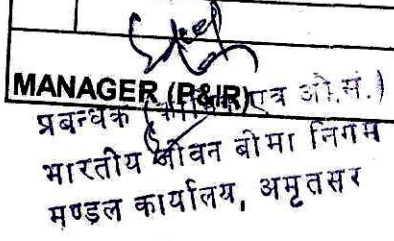 MANAGER (P&IR)
प्रबन्धक एवं औ.सं.)
भारतीय जीवन बीमा निगम
मण्डल कार्यालय, अमृतसर